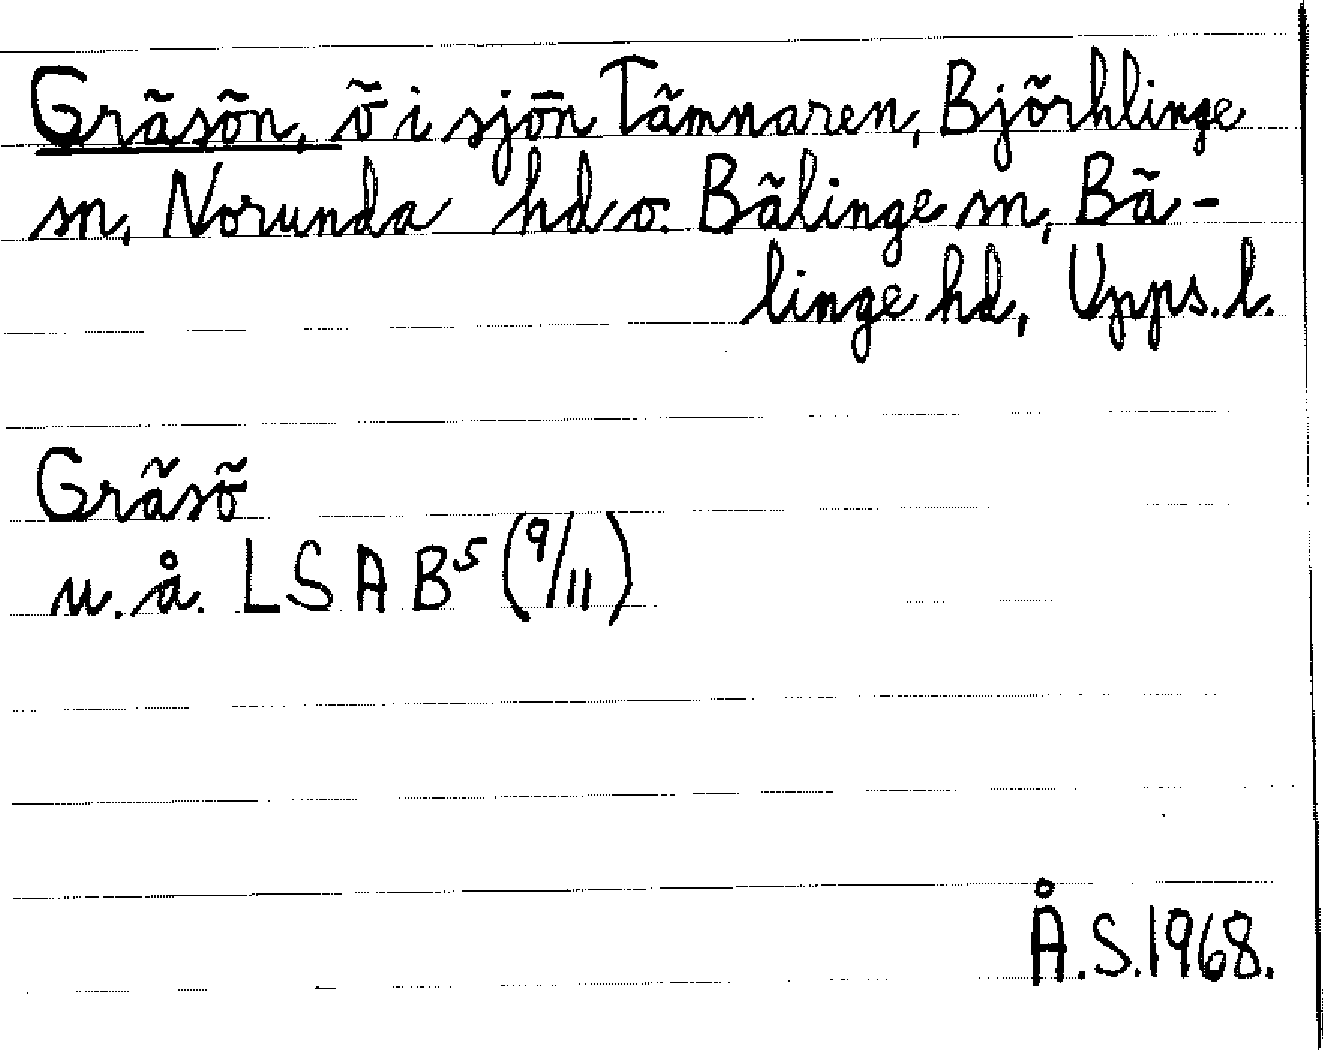 Gräsön, ö i sjön Tämnaren, Björhlinge
sn, Norunda hd o. Bälinge sn, Bä-
linge hd, Upps. l.
Gräsö
u. å. LSA B5 (9/11)
Å.S. 1968.